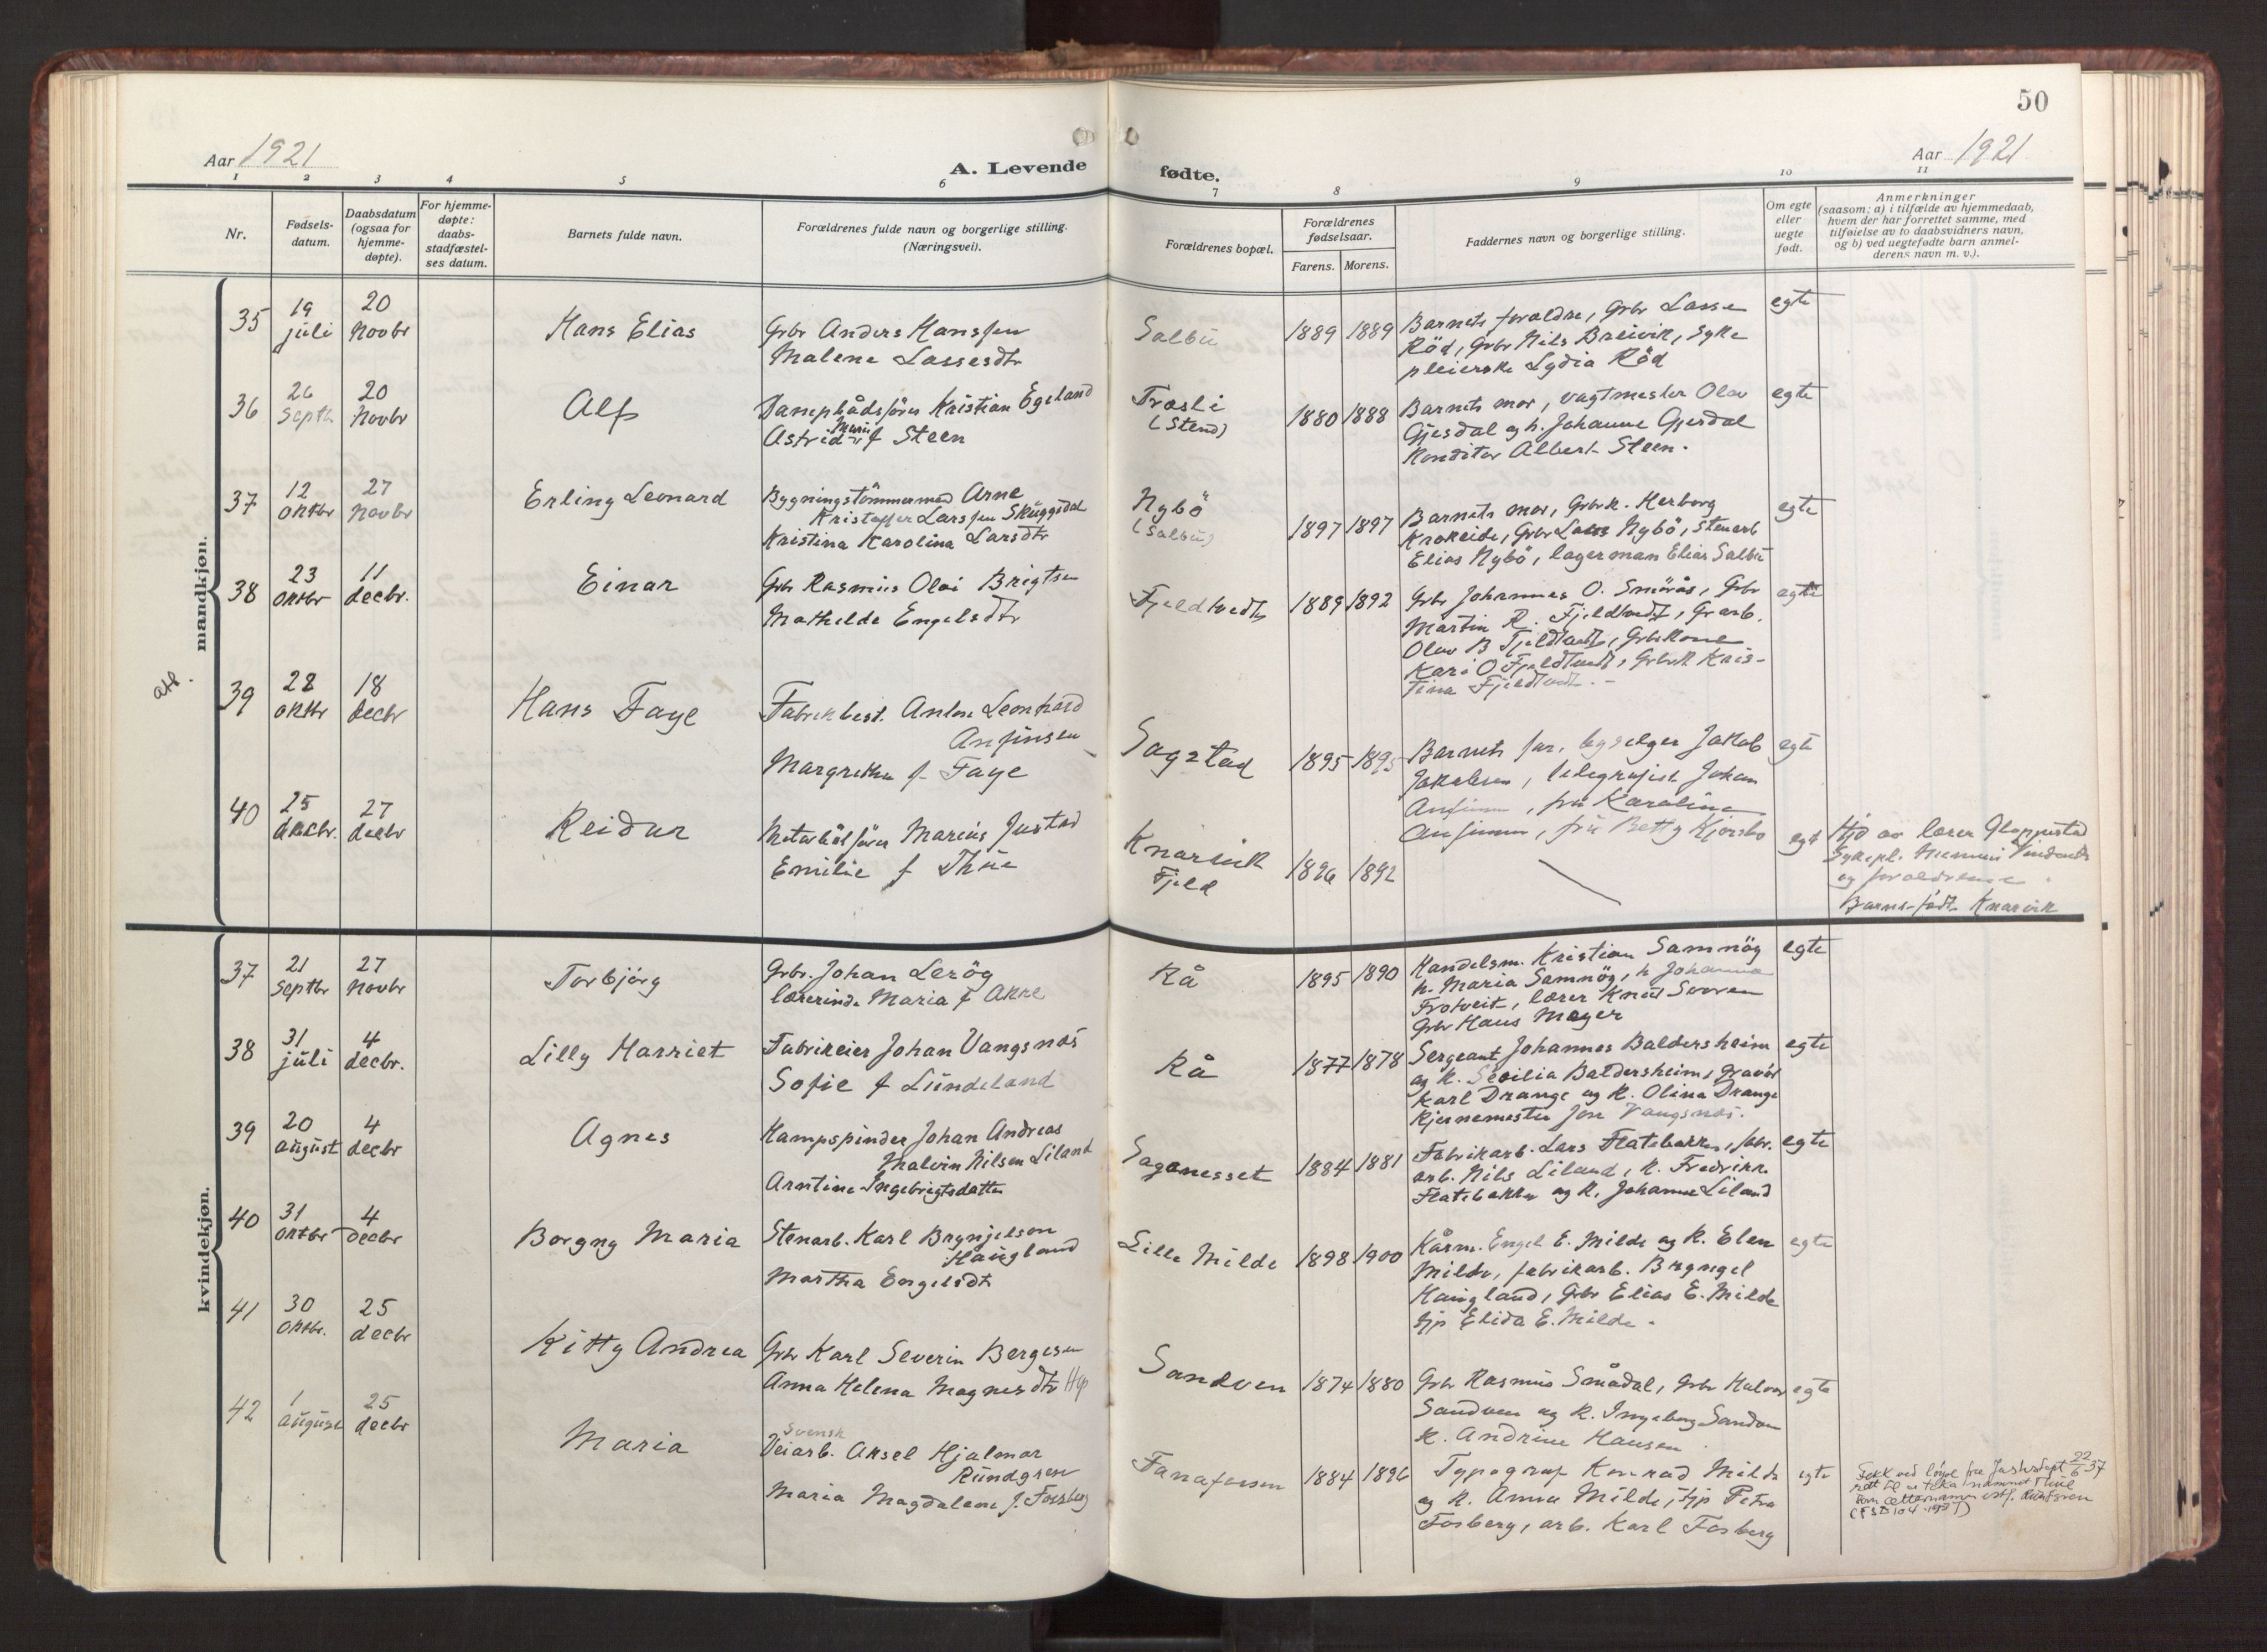 50
Aar 1921
A. Levende fødte.
Aar 1921
1 2 3 4 5 6 7 8 9 10 11
Nr.
Fødsels-
datum.
Daabsdatum
(ogsaa for
hjemme-
døpte).
For hjemme-
døpte:
daabs-
stadfæstel-
ses datum.
Barnets fulde navn.
Forældrenes fulde navn og borgerlige stilling.
(Næringsvei).
Forældrenes bopæl.
Forældrenes
fødselsaar.
Farens. Morens.
Faddernes navn og borgerlige stilling.
Om egte
eller
uegte
født.
Anmerkninger
(saasom: a) i tilfælde av hjemmedaab,
hvem der har forrettet samme, med
tilføielse av to daabsvidners navn,
og b) ved uegtefødte barn anmel-
derens navn m. v.).
mandkjøn.
35
19
juli
20
Novbr
Hans Elias
Grbr Anders Hanssen
Malene Lassesdtr
Salbu
1889 1889
Barnets foraldre, Grbr Lasse
Röd, Grbr Nils Breivik, syke
pleierske Lydia Röd
egte
36
26
Septbr
20
Novbr
Alf
Dampbådsförer Kristian Egeland
Astrid Marie f Steen
Træsli
(Stend)
1880 1888
Barnets mor, vagtmester Olav
Gjesdal og h. Johanne Gjesdal
Konditor Albert Steen.
egte
37
12
Oktbr
27
Novbr
Erling Leonard
Bygningstömmermand Arne
Kristoffer Larssen Skuggedal
Kristina Karolina Larsdtr
Nybö
(Salbu)
1897 1897
Barnets mor, Grbrk. Herborg
Krokeide, Grbr Lars Nybö, Stenarb
Elias Nybö, lagerman Elias Salbu
egte
38
23
Oktbr
11
decbr.
Einar
Grbr Rasmus Olai Brigtsen
Mathilde Engelsdtr
Fjeldtvedt
1889 1892
Grbr Johannes O. Smörås, Grbr
Martin R. Fjeldtvedt, Grarb.
Olav B Fjeldtvedt, Grbrkone
Kari O Fjeldtvedt, Grbrk Kris-
tina Fjeldtvedt. -
egte
39
28
Oktbr
18
decbr
Hans Faye
Fabrikbest. Anton Leonhard
Anfinsen
Margrethe f Faye
Sagstad
1895 1895
Barnets far, Jakob
Jakobsen, telegrafist Johan
Anfinsen, fru Karoline
Anfinsen, fru Betty Kjorsbo
egte
40
25
27
decbr
Reidar
Motorbåtförer Marius Justad
Emilie f Thue
Knarvik
Fjeld
1896 1892
egt
Hjd av lærer Gloppestad
Sykepl.
og foraldrene.
Barnet födt Knarvik
kvindekjøn.
37
21
Septbr
27
Novbr
Torbjörg
Grbr. Johan Leröy
lærerinde Maria f Akre
Rå
1895 1890
Handelsm. Kristian Samnöy
h. Maria Samnöy, h Johanna
Frotveit, lærer Knut Svoren
Grbr Hans Meyer
egte
38
31
juli
4
decbr.
Lilly Harriet
Fabrikeier Johan Vangsnæs
Sofie f Lundeland
Rå
1877 1878
Sergeant Johannes Baldersheim
og K. Sesilia Baldersheim, Gravör
Karl Drange og K. Olina Drange
Kjernemester Jon Vangsnæs.
egte
39
20
august
4
decbr
Agnes
Hampspinder Johan Andreas
Malvin Nilsen Liland
Arntine Ingebrigtsdatter
Saganesset
1884 1881
Fabrikarb. Lars Flatebakken, fabr.
arb. Nils Liland, K. Fredrikke
Flatebakken og K. Johanne Liland
egte
40
31
Oktbr
4
decbr
Borgny Maria
Stenarb. Karl Brynjelson
Haugland
Martha Engelsdtr
Lille Milde
1898 1900
Kårm. Engel E. Milde og K. Elen
Milde, fabrikarb. Bryngel
Haugland, Grbr Elias E. Milde
tjp Elida E. Milde.
egte
41
30
Oktbr.
25
decbr
Kitty Andrea
Grbr Karl Severin Bergesen
Anna Helena Magnesdtr
Sandven
1874 1880
Grbr Rasmus Smådal, Grbr Halvor
Sandven og K. Ingeborg Sandven
K. Andrine Hansen
egte
42
1
august
25
decbr
Maria
Svensk
Veiarb. Aksel Hjalmar
Rundgren
Maria Magdalene f. Fosberg
Fanafossen
1884 1896
Typograf Konrad Milde
og K. Anna Milde, tjp Petra
Fosberg, arb. Karl Fosberg
egte
Fekk ved löyve fra Justisdept 22/6 37
rett til å taka namnet
som ætternamn istf. Rundgren